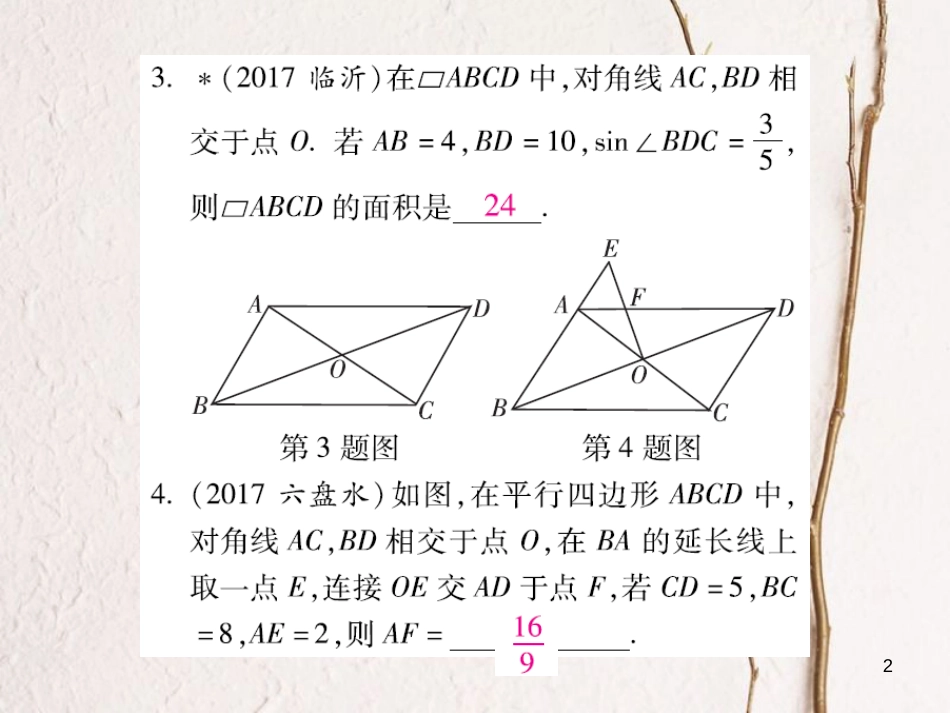 3. *(2017 临沂)在▱ABCD 中,对角线 AC,BD 相
交于点 O. 若 AB=4,BD=10,sin∠BDC=3/5,
则▱ABCD 的面积是 24 .
A D O B C
E A F D O B C
第 3 题图 第 4 题图
4. (2017 六盘水)如图,在平行四边形 ABCD 中,
对角线 AC,BD 相交于点 O,在 BA 的延长线上
取一点 E,连接 OE 交 AD 于点 F,若 CD=5,BC
=8,AE=2,则 AF= 16/9 .
2